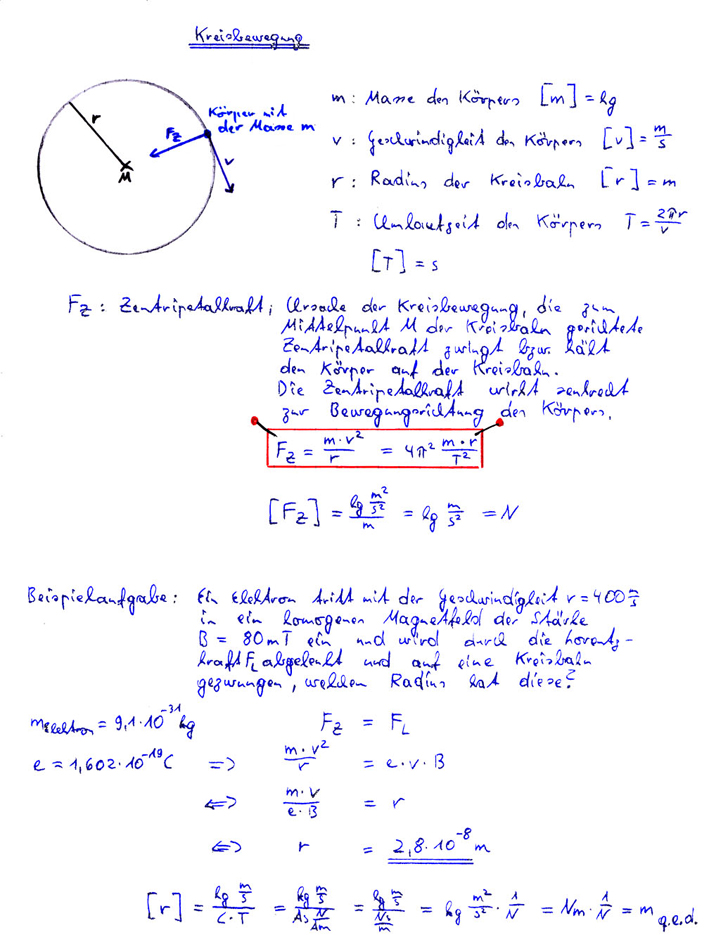 Kreisbewegung
Körper mit
der Masse m
r
F_Z
v
M
m : Masse des Körpers [m] = kg
v : Geschwindigkeit des Körpers [v] = m/s
r : Radius der Kreisbahn [r] = m
T : Umlaufzeit des Körpers T = 2πr/v
[T] = s
F_Z : Zentripetalkraft; Ursache der Kreisbewegung, die zum
Mittelpunkt M der Kreisbahn gerichtete
Zentripetalkraft zwingt bzw. hält
den Körper auf der Kreisbahn.
Die Zentripetalkraft wirkt senkrecht
zur Bewegungsrichtung des Körpers.
F_Z = m·v²/r = 4π² m·r/T²
[F_Z] = kg m²/s²/m = kg m/s² = N
Beispielaufgabe: Ein Elektron tritt mit der Geschwindigkeit v = 400 m/s
in ein homogenes Magnetfeld der Stärke
B = 80 mT ein und wird durch die Lorentz-
kraft F_L abgelenkt und auf eine Kreisbahn
gezwungen, welchen Radius hat diese?
m_Elektron = 9,1·10⁻³¹ kg F_Z = F_L
e = 1,602·10⁻¹⁹ C => m·v²/r = e·v·B
<=> m·v/e·B = r
<=> r = 2,8·10⁻⁸ m
[r] = kg m/s / C·T = kg m/s / As N/Am = kg m/s / Ns/m = kg m²/s² · 1/N = Nm · 1/N = m q.e.d.